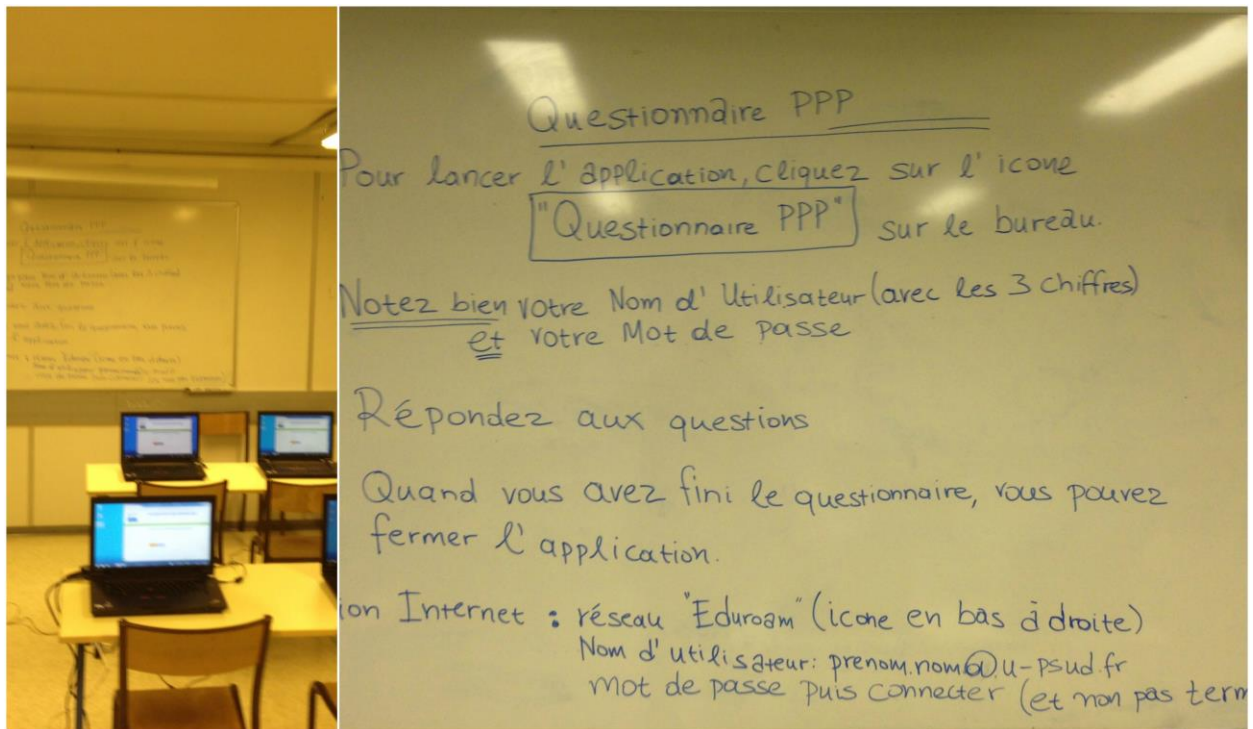 Questionnaire PPP
Pour lancer l'application, cliquez sur l'icone
"Questionnaire PPP" sur le bureau.
Notez bien votre Nom d'Utilisateur (avec les 3 chiffres)
et votre Mot de passe
Répondez aux questions
Quand vous avez fini le questionnaire, vous pouvez
fermer l'application.
ion Internet : réseau "Eduroam" (icone en bas à droite)
Nom d'utilisateur: prenom.nom@u-psud.fr
mot de passe puis connecter (et non pas term